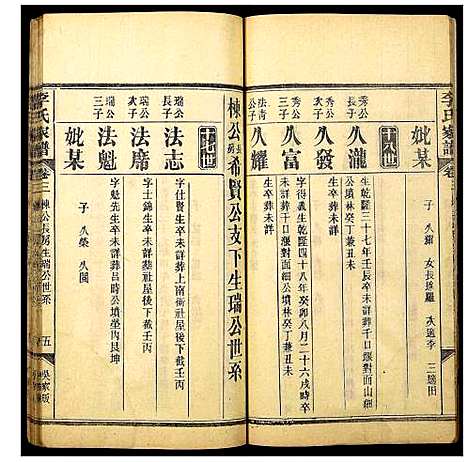 李氏家譜
卷三
妣某
子 久耀 女長適羅 次適李 三適田
十八世
秀公長子
久瀧
生乾隆三十七年壬辰卒未詳葬千口堰對面山細公墳林癸丁兼丑未
秀公次子
久發
生卒未詳
秀公三子
久富
字得義生乾隆四十八年癸卯八月二十六戌時卒未詳葬千口堰對面細公墳林癸丁兼丑未
法青公子
久耀
生卒未詳
棟公長房希賢公支下生瑞公世系
十七世
瑞公長子
法志
字仕賢生卒未詳葬上南衝社屋後下截壬丙
瑞公次子
法席
字士錦生卒未詳葬社屋後下截壬丙
瑞公三子
法魁
字魁先生卒未詳葬呂時公墳塋內艮坤
妣某
子 久榮 久園
李氏家譜
卷三
棟公長房生瑞公世系
五
吳家坂